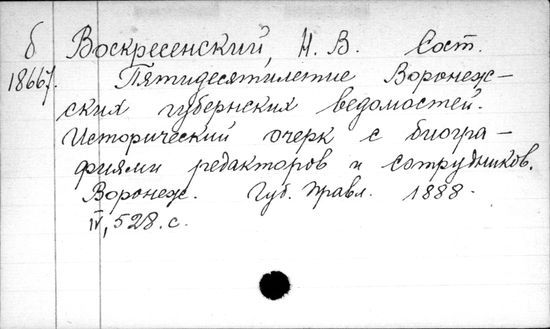 б Воскресенский, Н. В. Сост.
18667. Пятидесятилетие Воронеж-
ских губернских ведомостей.
Исторический очерк с биогра-
фиями редакторов и сотрудников.
Воронеж. Губ. Правл. 1888.
IV, 528. с.